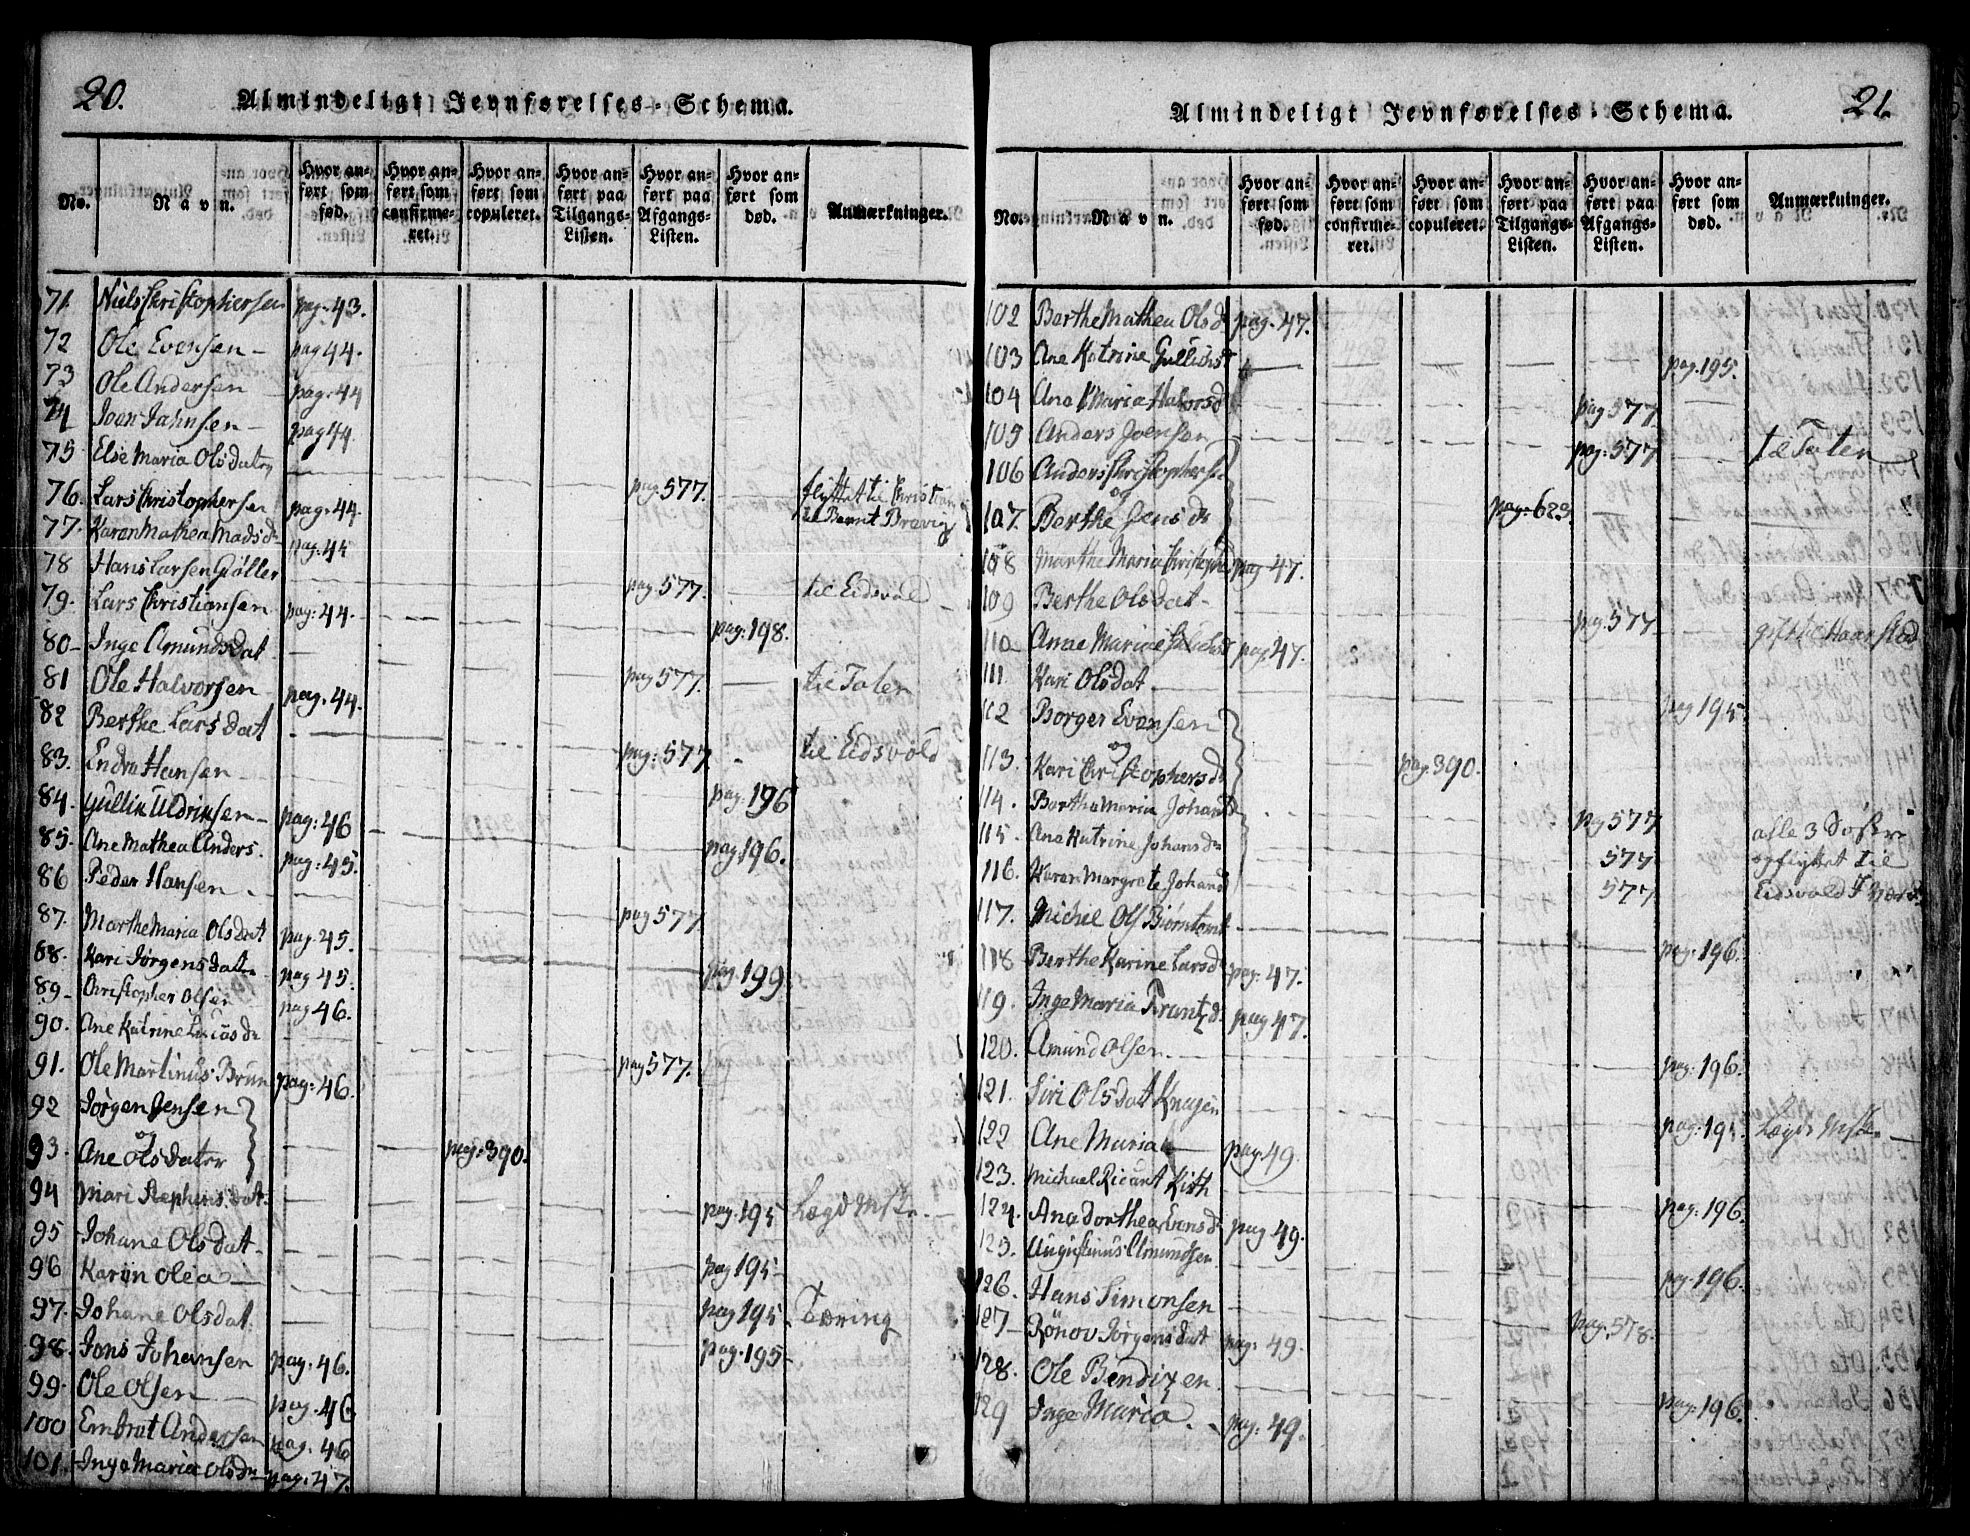 20.
Almindeligt Jevnførelses-Schema.
No.
Navn.
Hvor anført som fød.
Hvor anført som confirmeret.
Hvor anført som copuleret.
Hvor anført paa Tilgangs-Listen.
Hvor anført paa Afgangs-Listen.
Hvor anført som død.
Anmærkninger.
71 Niels Christophersen pag. 43.
72 Ole Evensen pag 44.
73 Ole Andersen pag. 44
74 Joen Jahnsen pag 44.
75 Else Maria Olsdatr pag. 577. flyttet til
76. Lars Christophersen pag. 44. Bernt Brevig
77. Karen Mathea Madsdr pag. 44
78 Hans Larsen Gjøller pag. 577. til Eidsvol
79. Lars Christiansen pag: 44.
80 Inge Amundsdat pag. 198.
81 Ole Halvorsen pag. 44. pag 577. til Toten
82 Berthe Larsdat pag: 577. til Eidsvold
83. Endre Hansen pag. 196
84. Gullik Uldriksen pag: 46
85. Ane Mathea Anders. pag: 45. pag 196.
86 Peder Hansen pag 577.
87. Marthe Maria Olsdat pag. 45.
88. Kari Jørgensdatr pag 45. pag. 199
89 Christopher Olsen pag 46.
90. Ane Katrine dr pag 577.
91. Ole Martinus Brun pag: 46.
92 Jørgen Jensen
og
93. Ane Olsdater pag. 390.
94 Mari Stephensdat. pag. 195 Lægd
95 Johane Olsdat. pag 195
96 Karin Olea pag 195. Tæring
97. Johane Olsdat. pag. 195
98. Jens Johansen pag. 46.
99. Ole Olsen pag. 46
100 Embret Andersen pag. 46
101. Inge Maria Olsdr pag. 47.
21.
Almindeligt Jevnførelses-Schema.
No.
Navn.
Hvor anført som fød.
Hvor anført som confirmeret.
Hvor anført som copuleret.
Hvor anført paa Tilgangs-Listen.
Hvor anført paa Afgangs-Listen.
Hvor anført som død.
Anmærkninger.
102 Berthe Mathea Olsd pag. 47.
103 Ane Katrine pag. 195.
104 Ane Maria Halvorsd pag 577.
105 Anders Joensen pag. 577 til Toten
106 Anders Christophers.
og
107. Berthe Jensdr pag. 623.
108 Marthe Maria pag 47.
109 Berthe Olsdat pag. 577 gift til Haarstad
110 Anne Marie pag. 47.
111 Kari Olsdat pag 195
112 Borger Evensen
og
113. Kari Christophersdr pag. 390.
114. Berthe Maria Johansd pag 577 alle 3 Søstre
115. Ane Katrine Johansdr 577 og flyttet til
116. Karen Margrete Johansd 577 Eidsvold
117. Michel Ols Bjørntomt pag. 196.
118 Berthe Karine Larsd pag. 47.
119. Inge Maria Frantzd pag 47.
120. Amund Olsen pag: 196.
121. Siri Olsdat Knagen pag: 195 Lægd
122 Ane Maria pag. 49.
123. Michael Ricart Kish pag. 196.
124. Ane Dorthea Evensd pag 49.
125. Augustinus Amundsen pag. 196.
126. Hans Simonsen pag. 578.
127 Rønov Jørgensdat pag. 49.
128. Ole Bendixen pag. 196.
129 Inge Maria. pag. 49.